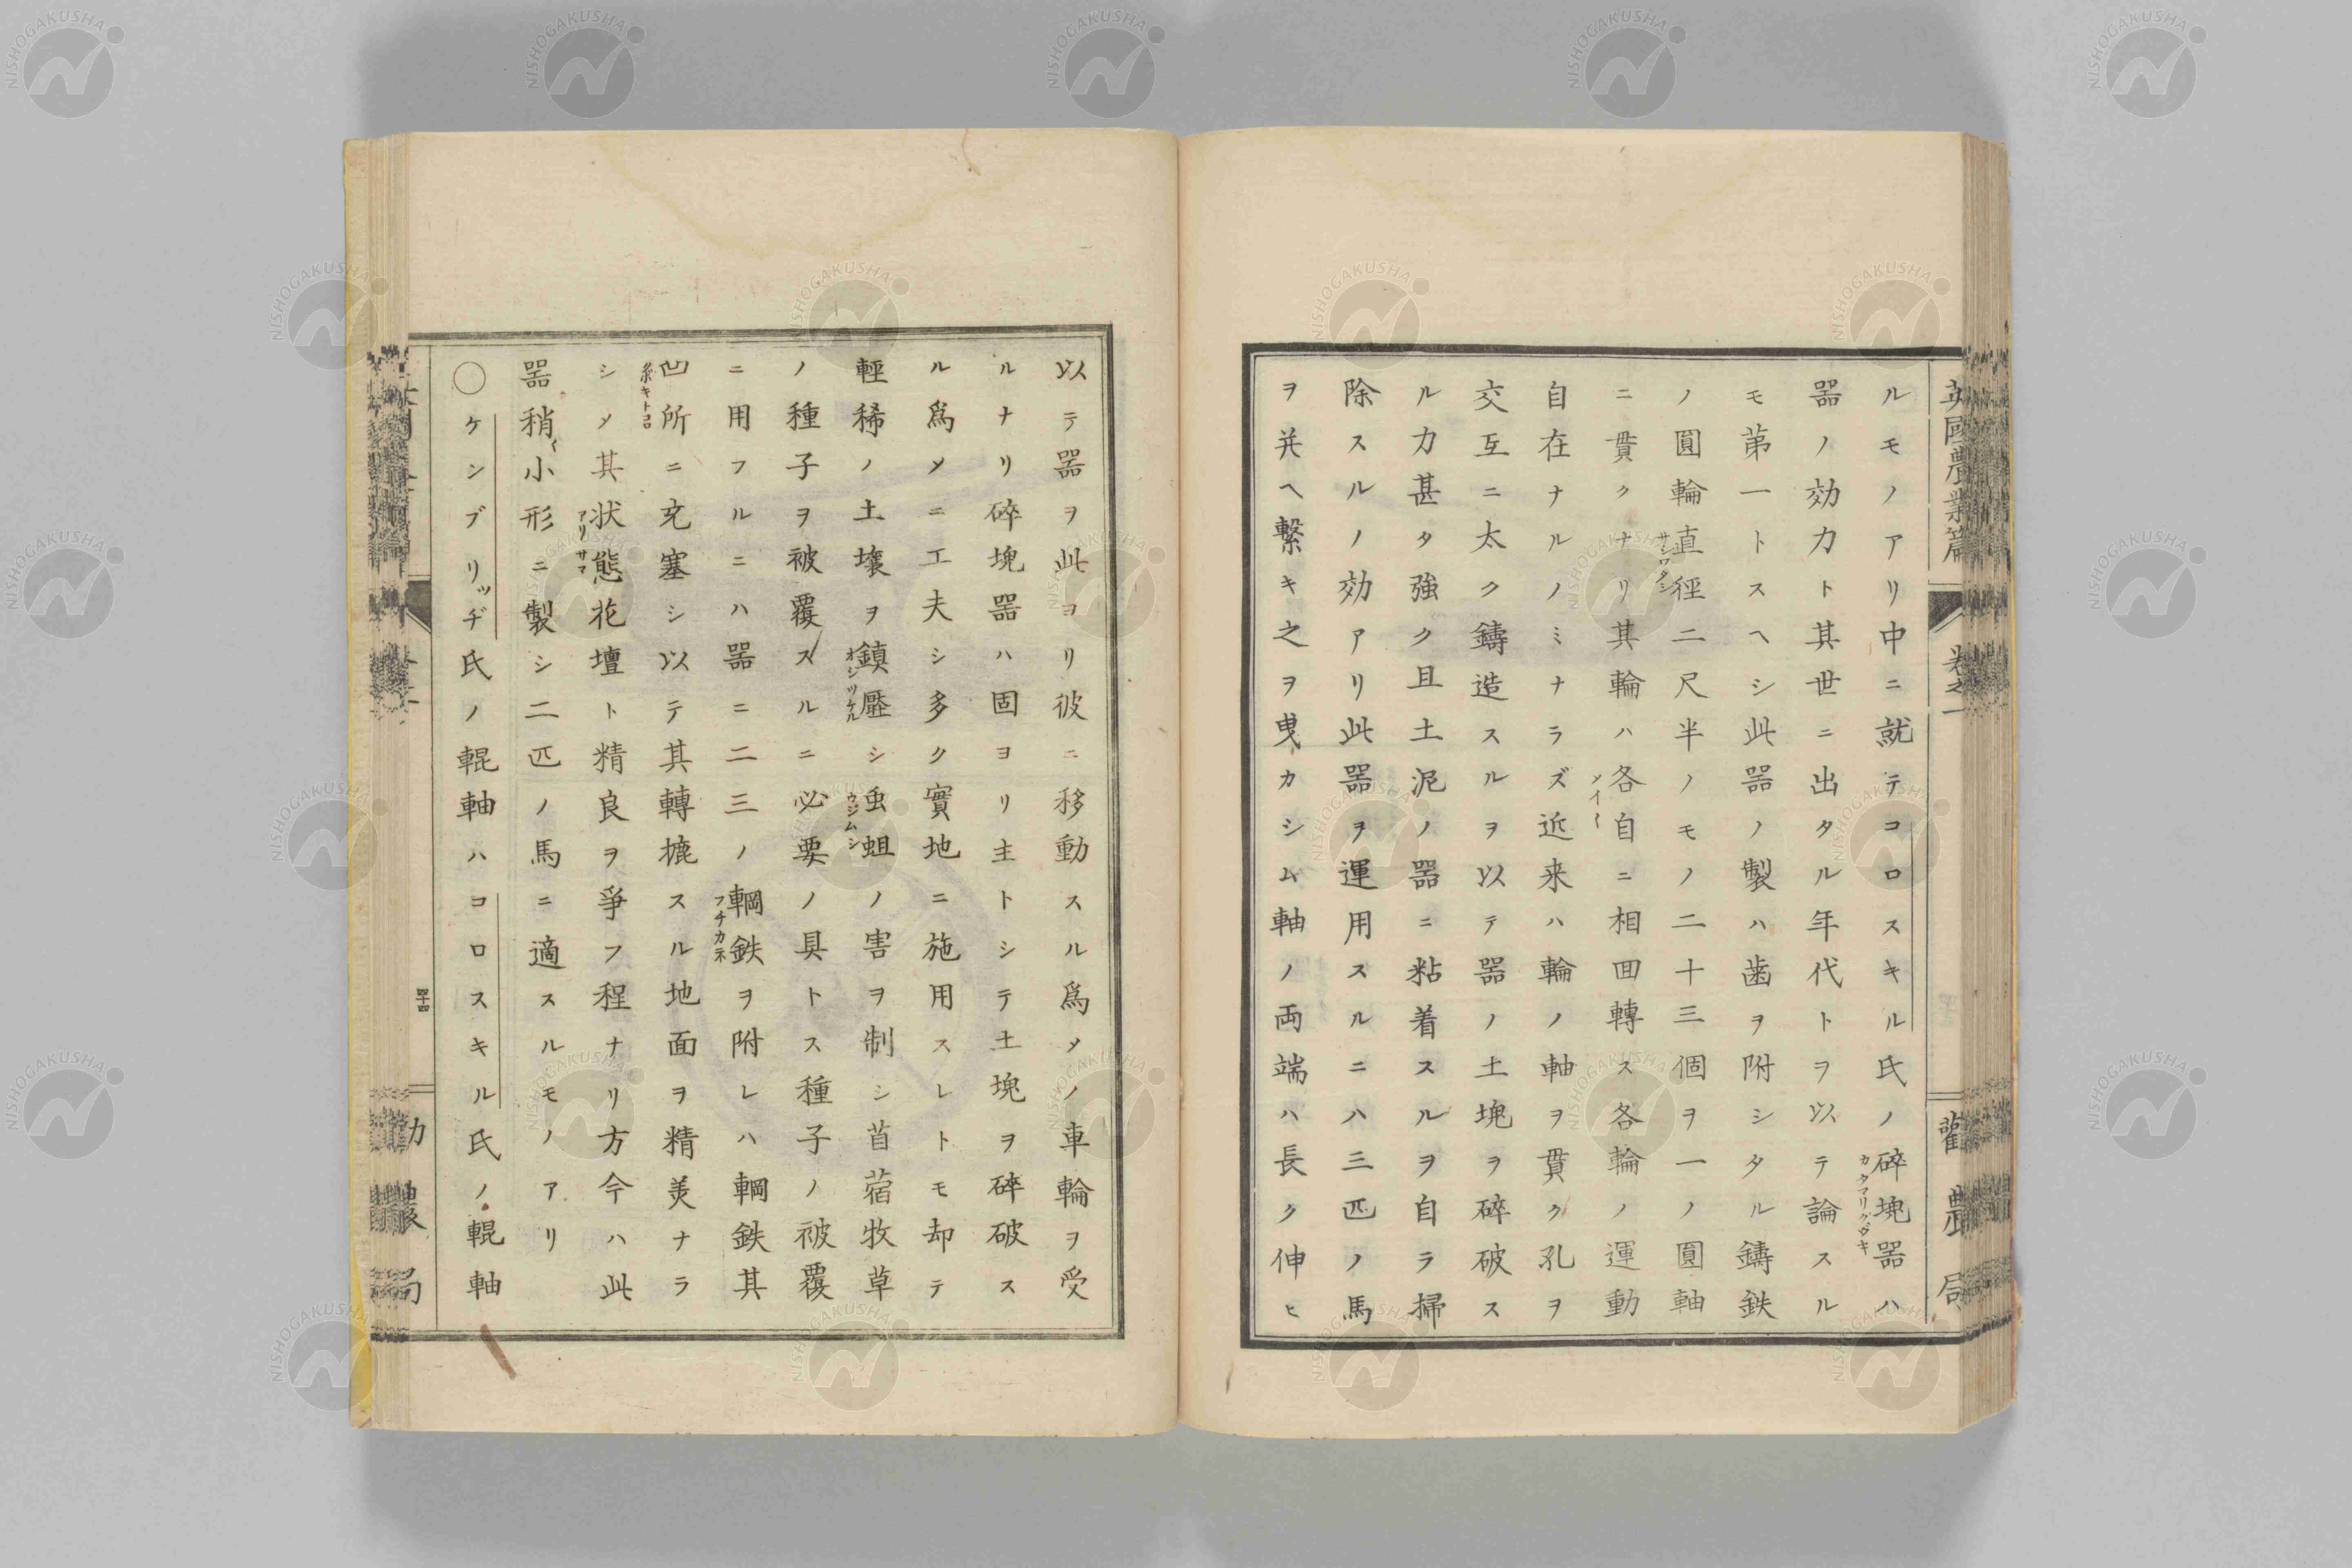 英國農業篇 卷之一 勸農局
ルモノアリ中ニ就テコロスキル氏ノ碎塊器ハ
カタマリクダキ
器ノ効力ト其世ニ出タル年代トヲ以テ論スル
モ苐一トスヘシ此器ノ製ハ歯ヲ附シタル鑄鉄
ノ圓輪直徑二尺半ノモノ二十三個ヲ一ノ圓軸
サシワタシ
ニ貫クナリ其輪ハ各自ニ相囬轉ス各輪ノ運動
メイ〱
自在ナルノミナラズ近来ハ輪ノ軸ヲ貫ク孔ヲ
交互ニ太ク鑄造スルヲ以テ器ノ土塊ヲ碎破ス
ル力甚タ強ク且土泥ノ器ニ粘着スルヲ自ラ掃
除スルノ効アリ此器ヲ運用スルニハ三匹ノ馬
ヲ并ヘ繋キ之ヲ曳カシム軸ノ両端ハ長ク伸ヒ
以テ器ヲ此ヨリ彼ニ移動スル爲メノ車輪ヲ受
ルナリ碎塊器ハ固ヨリ主トシテ土塊ヲ碎破ス
ル爲メニ工夫シ多ク實地ニ施用スレトモ却テ
輕稀ノ土壤ヲ鎮壓シ虫蛆ノ害ヲ制シ苜蓿牧草
オシツケル
ウジムシ
ノ種子ヲ被覆スルニ必要ノ具トス種子ノ被覆
ニ用フルニハ器ニ二三ノ輞鉄ヲ附レハ輞鉄其
フチカネ
凹所ニ充塞シ以テ其轉摝スル地面ヲ精美ナラ
シメ其状態花壇ト精良ヲ爭フ程ナリ方今ハ此
アリサマ
器稍〻小形ニ製シ二匹ノ馬ニ適スルモノアリ
○ケンブリッヂ氏ノ輥軸ハコロスキル氏ノ輥軸
四十四
勸農局